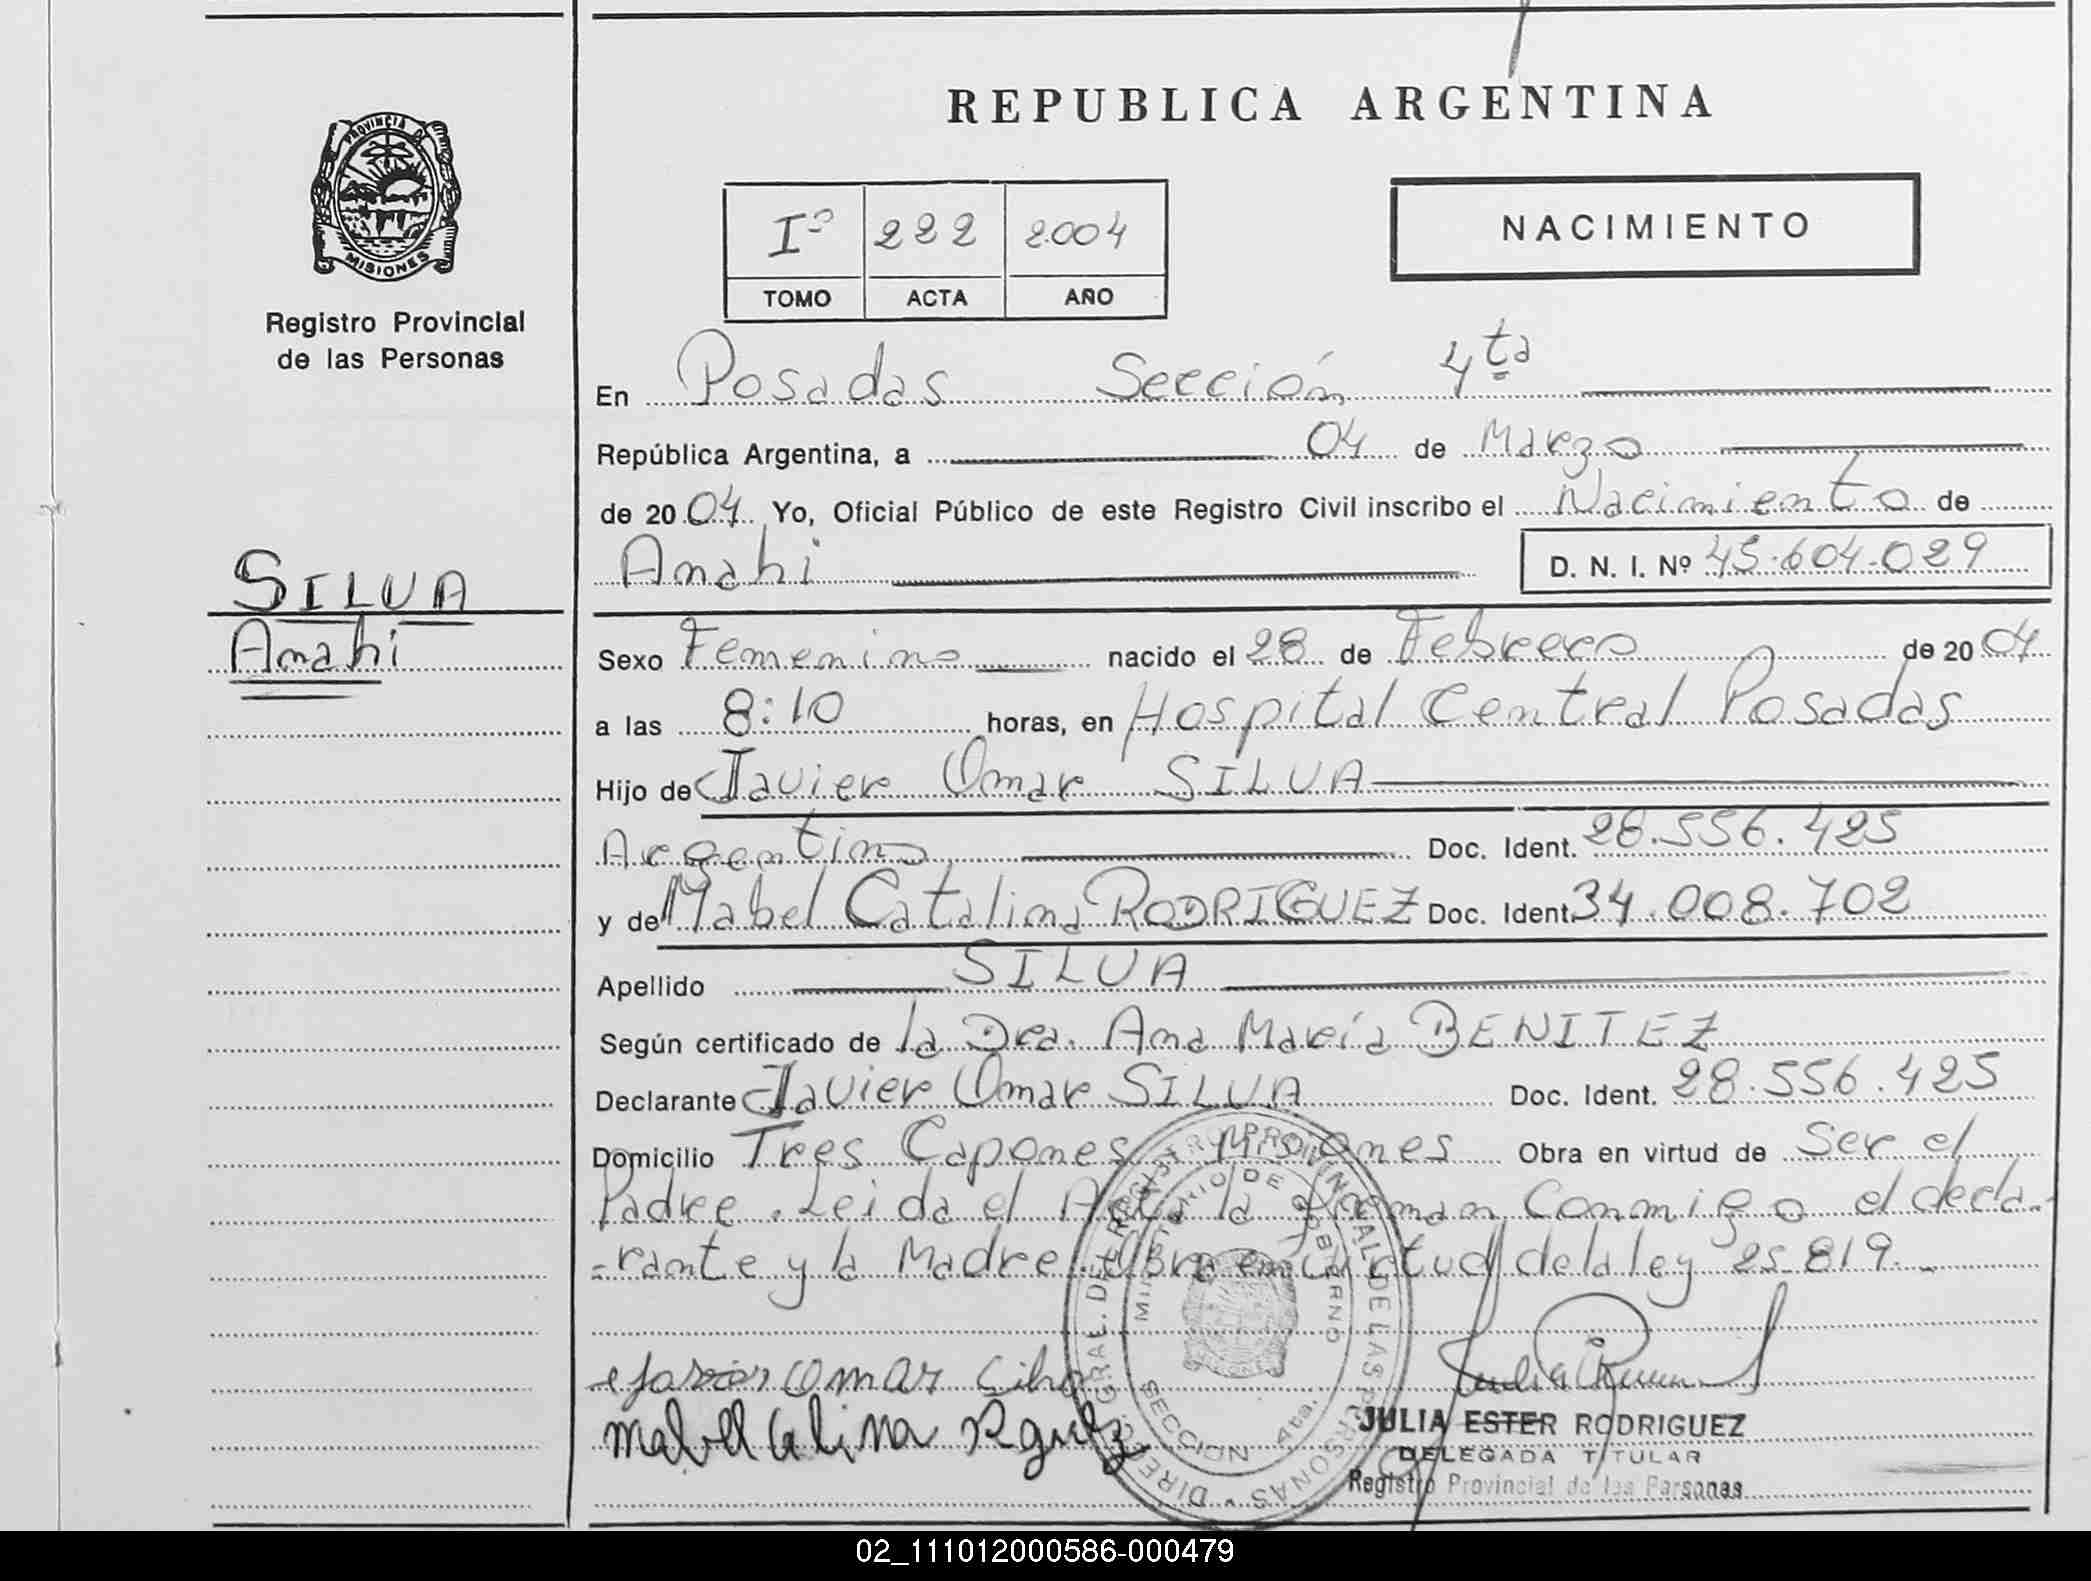 REPUBLICA ARGENTINA
PROVINCIA DE
MISIONES
Registro Provincial
de las Personas
Iº 222 2004
TOMO ACTA AÑO
NACIMIENTO
En Posadas Sección 4ta
República Argentina, a 04 de Marzo
de 2004 Yo, Oficial Público de este Registro Civil inscribo el Nacimiento de
Anahi D. N. I. Nº 45.604.029
SILVA
Anahi
Sexo Femenino nacido el 28 de Febrero de 2004
a las 8:10 horas, en Hospital Central Posadas
Hijo de Javier Omar SILVA
Argentino Doc. Ident. 28.556.425
y de Mabel Catalina RODRIGUEZ Doc. Ident. 34.008.702
Apellido SILVA
Según certificado de la Dra. Ana María BENITEZ
Declarante Javier Omar SILVA Doc. Ident. 28.556.425
Domicilio Tres Capones Misiones Obra en virtud de Ser el
Padre. Leida el Acta la firman Conmigo el decla-
-rante y la Madre. Obra en virtud de la ley 25.819.-
DIREC. GRAL. DEL REGISTRO PROVINCIAL DE LAS PERSONAS
MINISTERIO DE GOBIERNO
SECCION 4ta.
JULIA ESTER RODRIGUEZ
DELEGADA TITULAR
Registro Provincial de las Personas
02_111012000586-000479